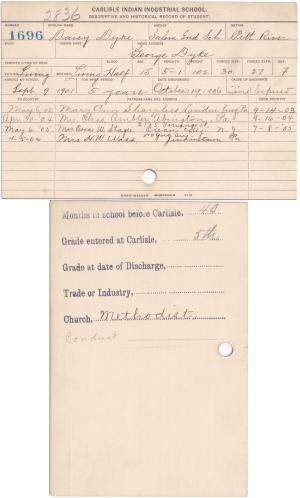 2836
CARLISLE INDIAN INDUSTRIAL SCHOOL.
DESCRIPTIVE AND HISTORICAL RECORD OF STUDENT.
NUMBER ENGLISH NAME AGENCY NATION
1696 Daisy Dyke Salem Ind Sch Pitt River
HOME ADDRESS
George Dyke
PARENTS LIVING OR DEAD BLOOD AGE HEIGHT WEIGHT FORCED INSP. FORCED EXPR. SEX
Living Living Half 15 5-1 102 30 27 F
ARRIVED AT SCHOOL FOR WHAT PERIOD DATE DISCHARGED CAUSE OF DISCHARGE
Sept 9 1901 5 years October 19, 1906 Time Expired
TO COUNTRY PATRONS NAME AND ADDRESS FROM COUNTRY
May 6, 02 Mary Ann Sharpless, London Pa 9-14-03
Apr 30-04 Mrs. Chas. Ambler Abington, Pa. 9-16-04
May 6 05 Ocean City N. J. 9-8-05
4-5-06 Mrs H. W. Jenkintown Pa
Months in school before Carlisle, 40
Grade entered at Carlisle, 5th
Grade at date of Discharge,
Trade or Industry,
Church, Methodist
Conduct